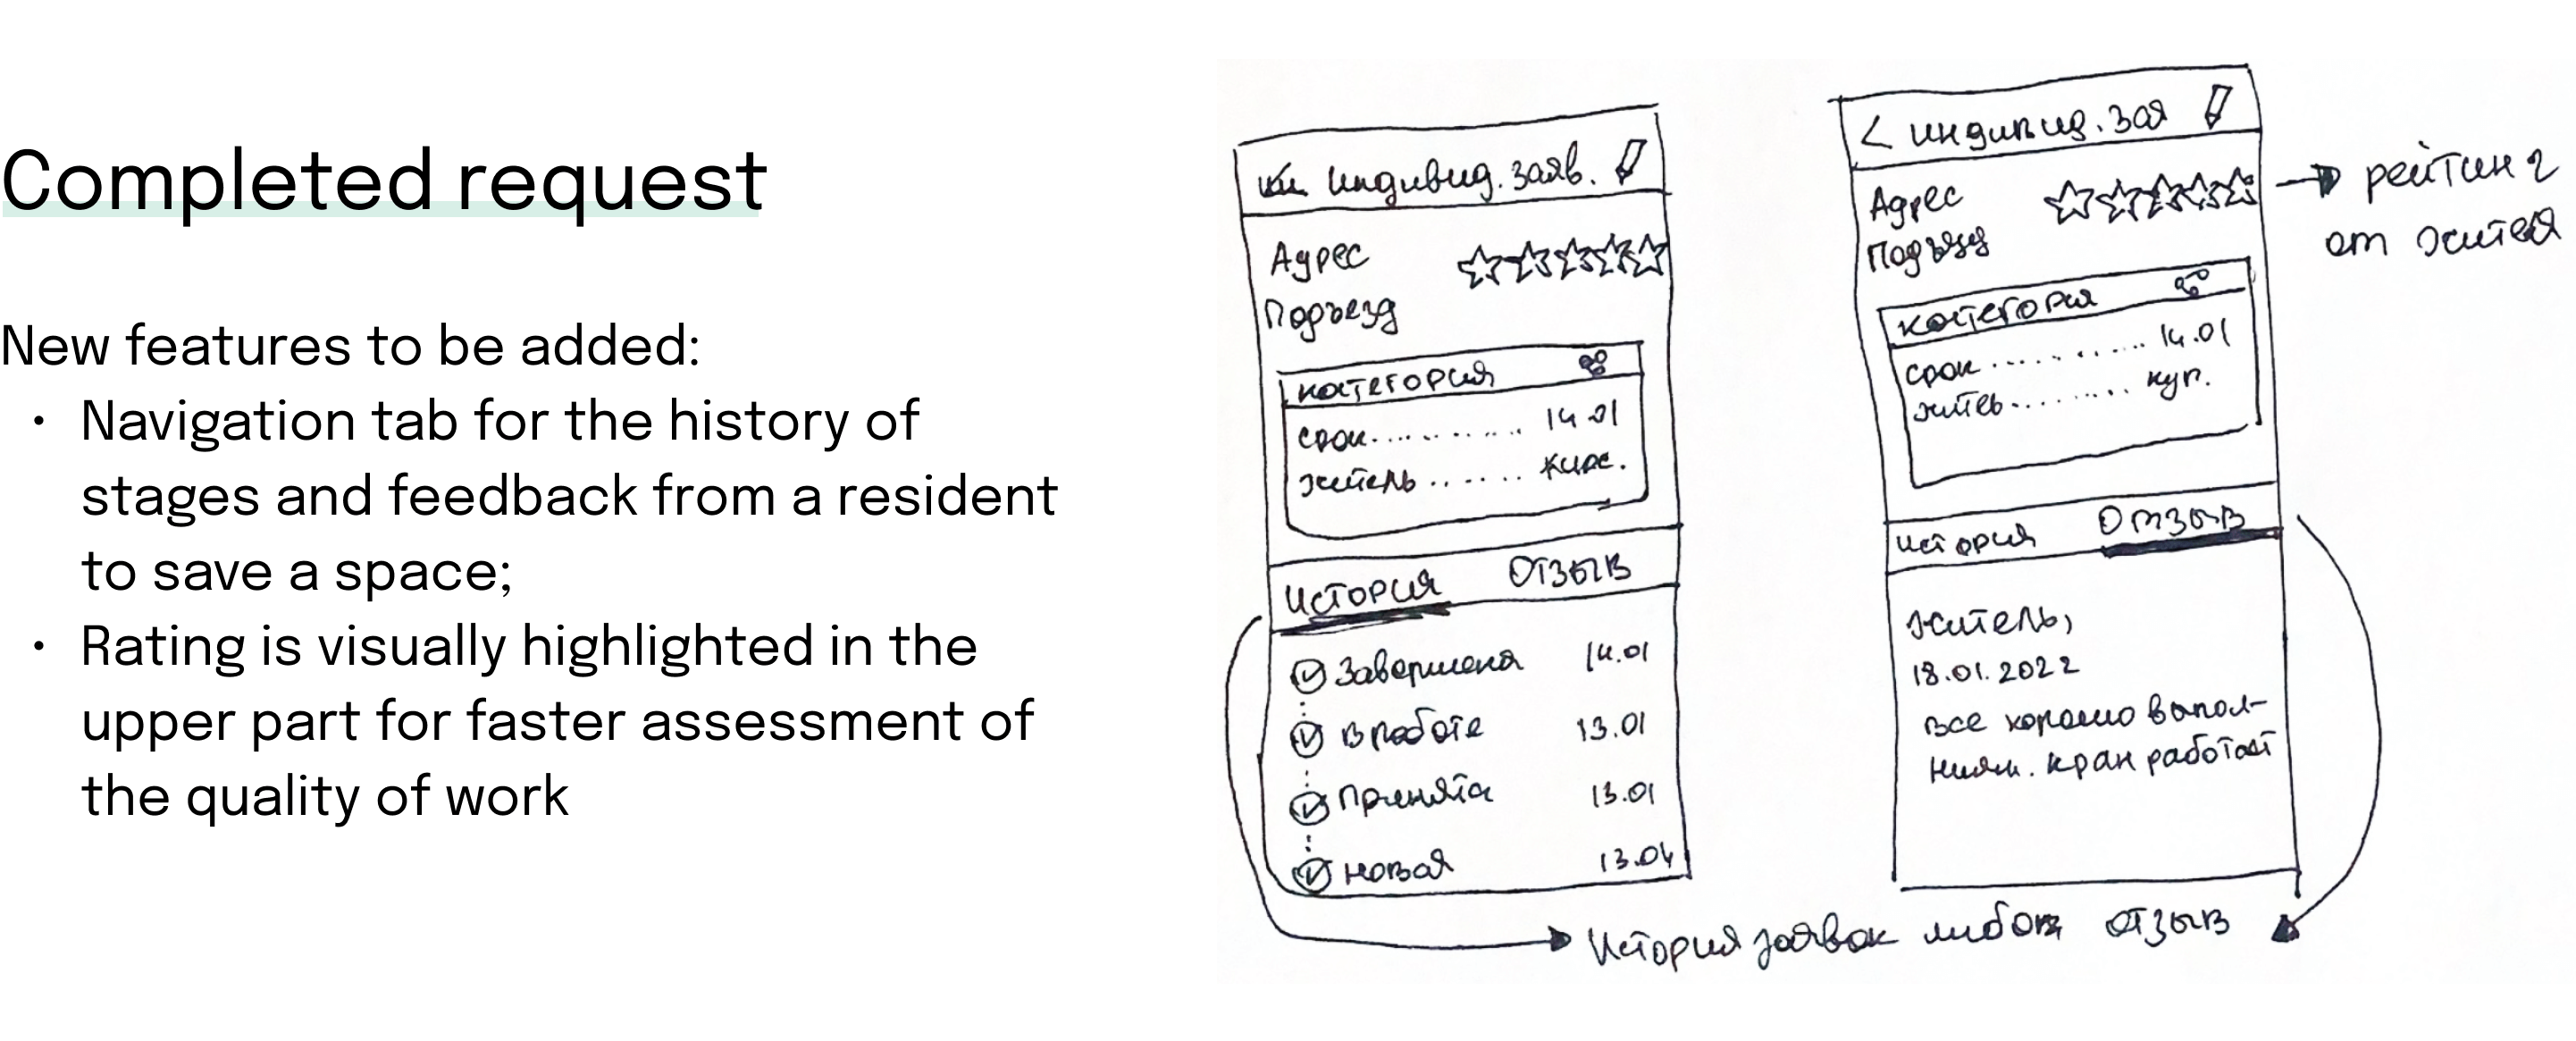 Completed request
New features to be added:
• Navigation tab for the history of
stages and feedback from a resident
to save a space;
• Rating is visually highlighted in the
upper part for faster assessment of
the quality of work
индивид. заяв.
Адрес
Подъезд
категория
срок........... 14.01
житель ......
История отзыв
Завершена 14.01
В работе 13.01
Принята 13.01
новая 13.01
< индивид. зая
Адрес
Подъезд
категория
срок........... 14.01
житель......... куп.
история Отзыв
житель,
18.01.2022
все хорошо выпол-
нили. кран работает
рейтинг
от жителя
История заявок либо отзыв